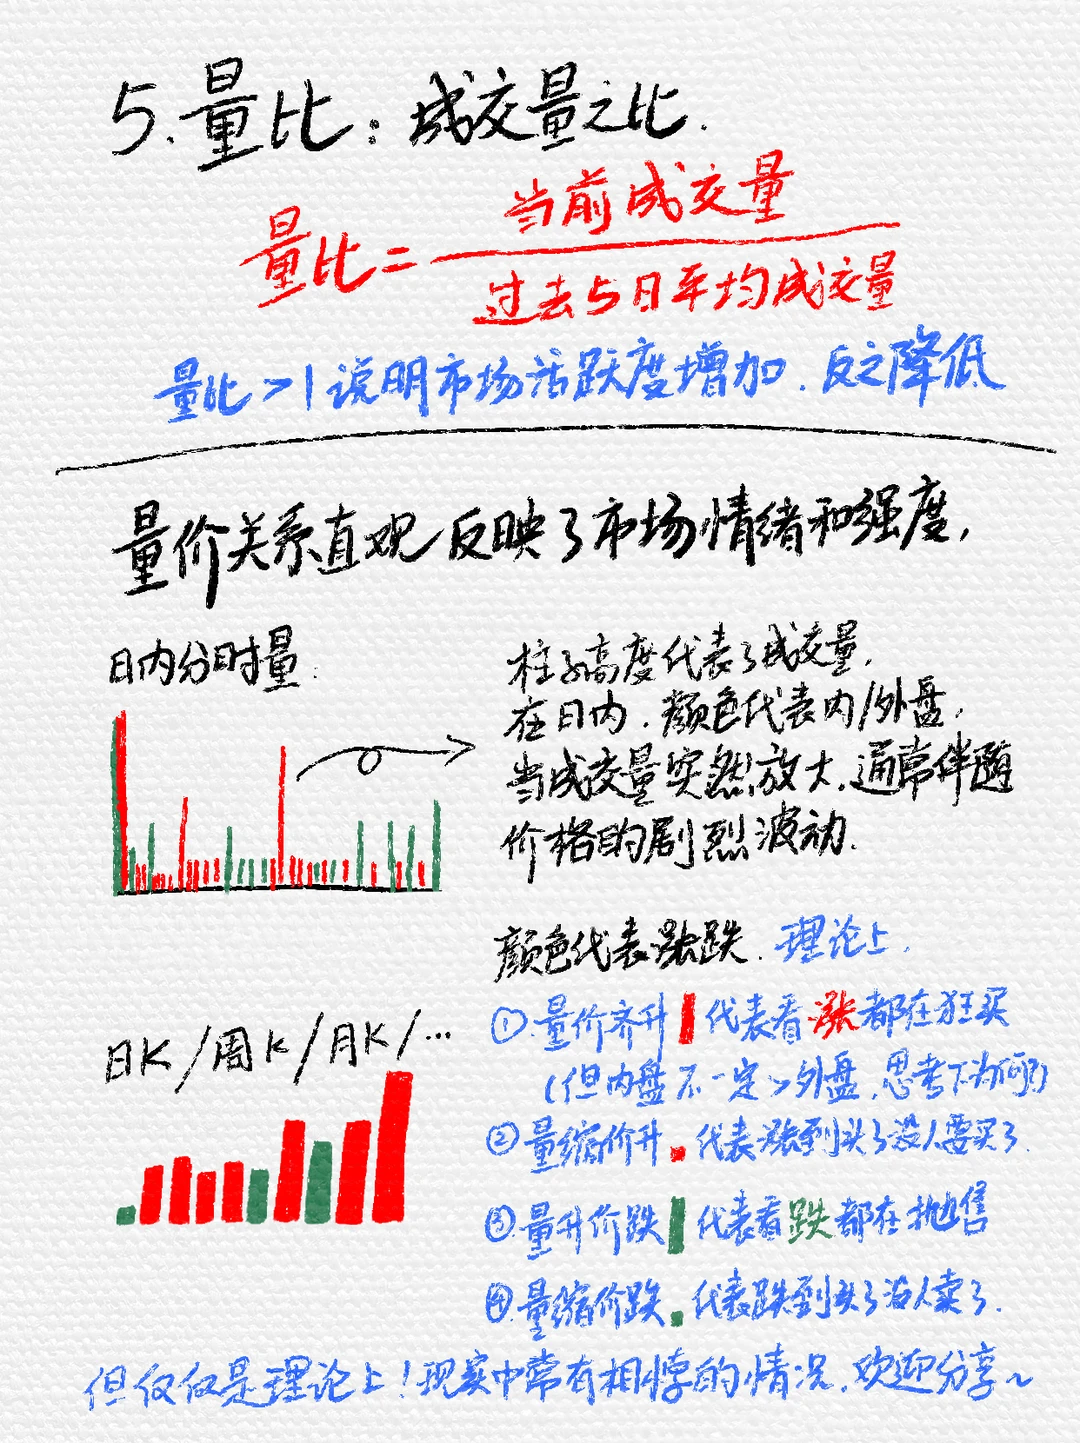 5.量比：成交量之比.
量比=当前成交量
过去5日平均成交量
量比>1说明市场活跃度增加.反之降低
量价关系直观反映了市场情绪和强度,
日内分时量:
柱子高度代表了成交量,
在日内.颜色代表内/外盘,
当成交量突然放大,通常伴随
价格的剧烈波动.
颜色代表涨跌.理论上,
日K/周K/月K/...
①量价齐升 代表看涨都在狂买
(但内盘不一定>外盘,思考下为何?)
②量缩价升 代表涨到头了没人要买了.
③量升价跌 代表看跌都在抛售
④量缩价跌 代表跌到头了没人卖了.
但仅仅是理论上!现实中常有相悖的情况,欢迎分享~